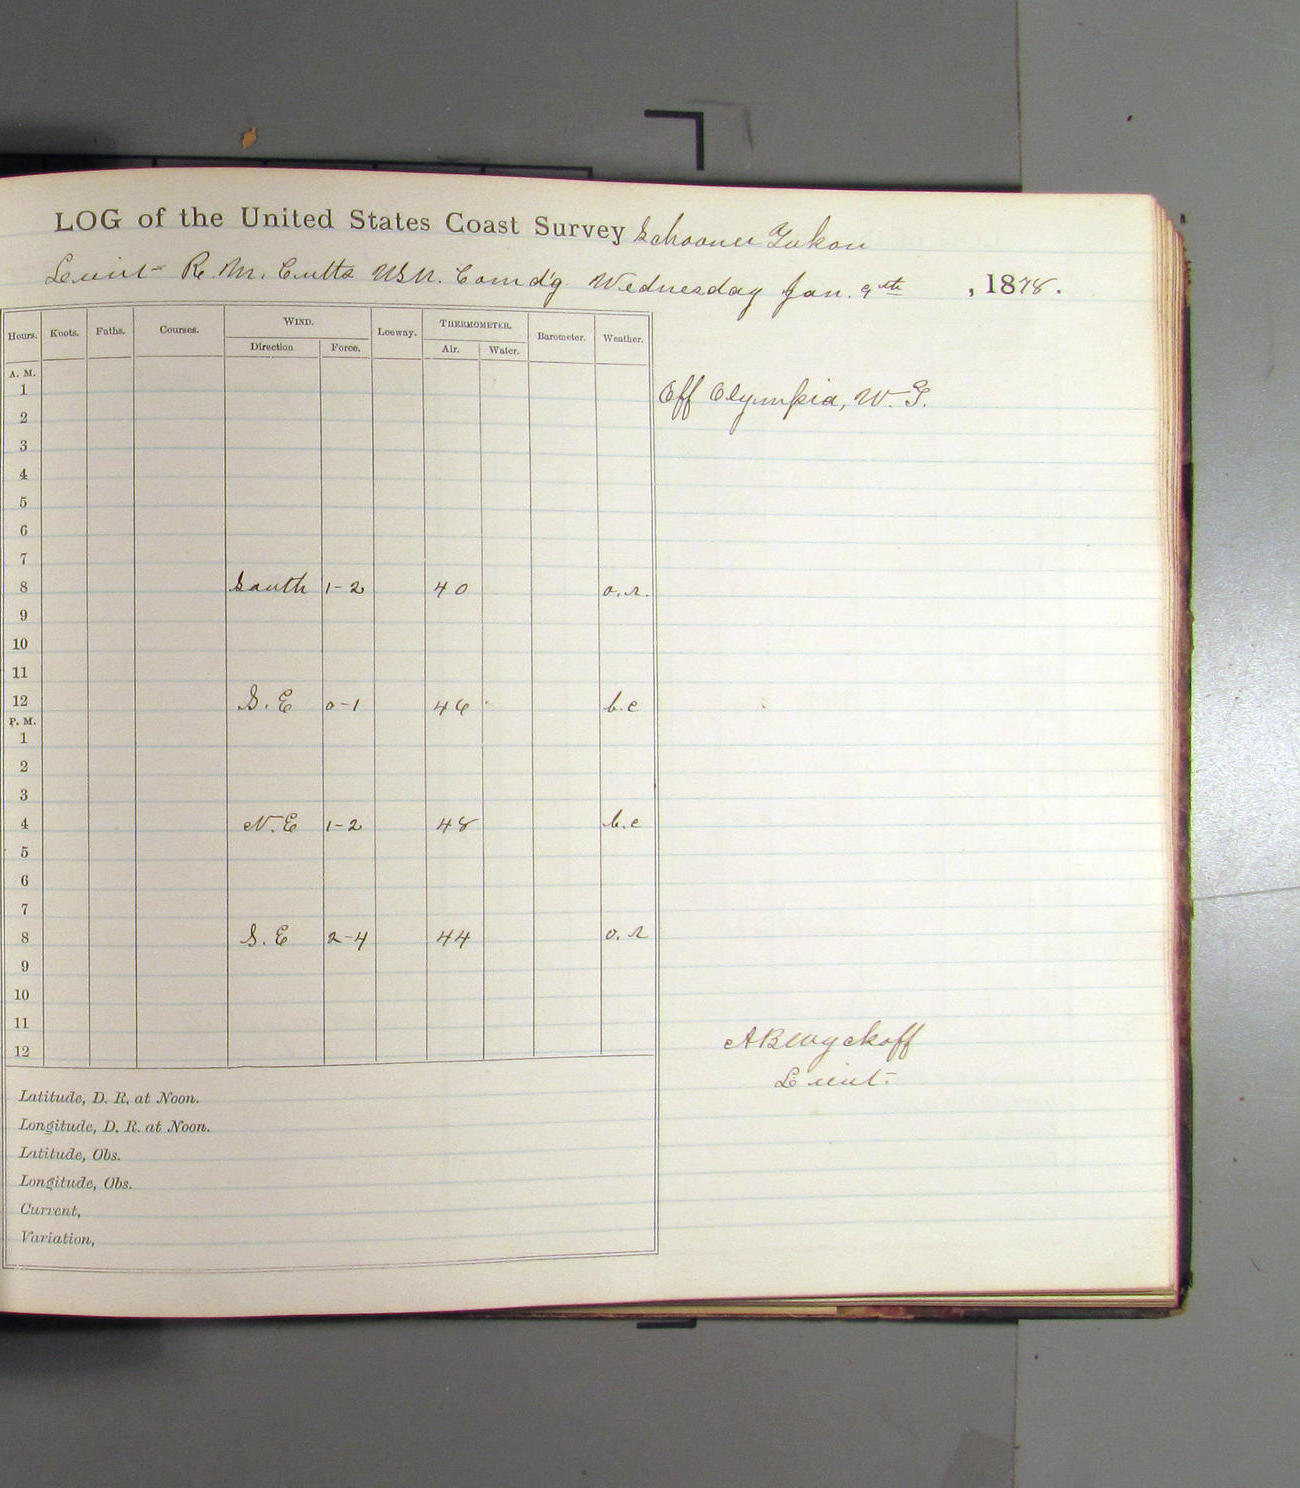 LOG of the United States Coast Survey Schooner Yukon
Lieut- R. M. Cutts USN. Comd'g Wednesday Jan. 9th, 1878.
Hours. Knots. Faths. Courses. WIND. Leeway. THERMOMETER. Barometer. Weather.
Direction. Force. Air. Water.
A. M.
1
Off Olympia, W. T.
2
3
4
5
6
7
8 South 1-2 40 o.r.
9
10
11
12 S.E 0-1 46 b.c
P. M.
1
2
3
4 N.E 1-2 48 b.c
5
6
7
8 S.E 2-4 44 o.r
9
10
11
12
A B Wyckoff
Lieut-
Latitude, D. R. at Noon.
Longitude, D. R. at Noon.
Latitude, Obs.
Longitude, Obs.
Current,
Variation,